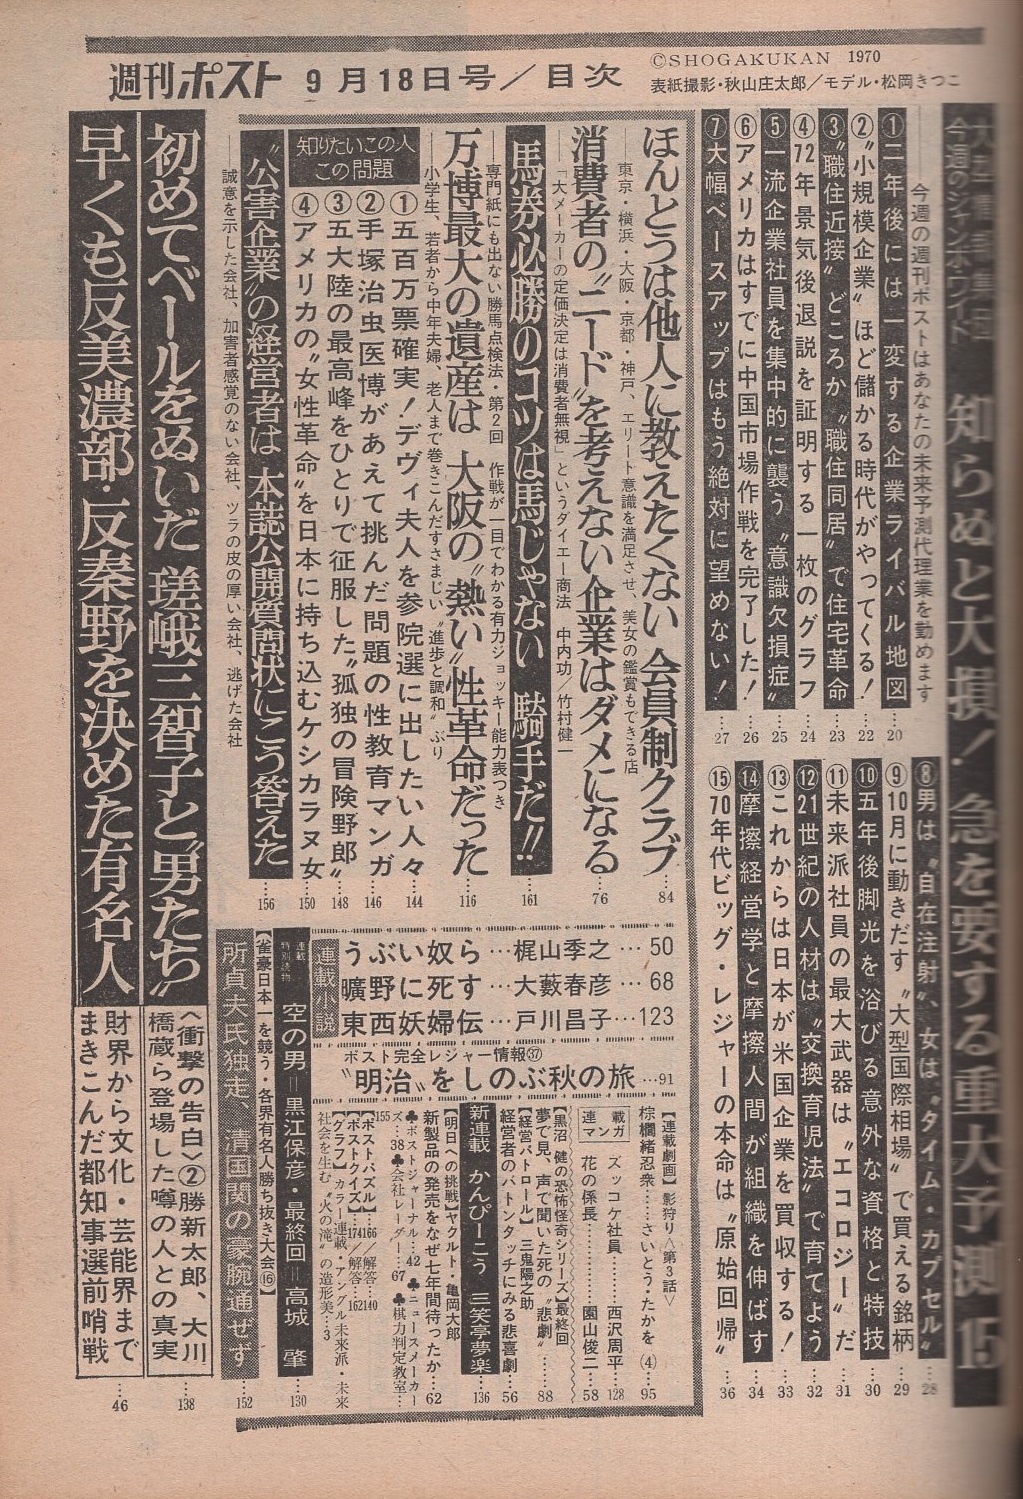 週刊ポスト 9月18日号／目次
©SHOGAKUKAN 1970
表紙撮影・秋山庄太郎／モデル・松岡きつこ
今週のジャンボ・ワイド
知らぬと大損！急を要する重大予測15
──今週の週刊ポストはあなたの未来予測代理業を勤めます
①二年後には一変する企業ライバル地図…20
②“小規模企業”ほど儲かる時代がやってくる！…22
③“職住近接”どころか“職住同居”で住宅革命…23
④72年景気後退説を証明する一枚のグラフ…24
⑤一流企業社員を集中的に襲う“意識欠損症”…25
⑥アメリカはすでに中国市場作戦を完了した！…26
⑦大幅ベースアップはもう絶対に望めない！…27
⑧男は“自在注射”、女は“タイム・カプセル”…28
⑨10月に動きだす“大型国際相場”で買える銘柄…29
⑩五年後脚光を浴びる意外な資格と特技…30
⑪未来派社員の最大武器は“エコロジー”だ…31
⑫21世紀の人材は“交換育児法”で育てよう…32
⑬これからは日本が米国企業を買収する！…33
⑭摩擦経営学と摩擦人間が組織を伸ばす…34
⑮70年代ビッグ・レジャーの本命は“原始回帰”…36
ほんとうは他人に教えたくない 会員制クラブ…84
東京・横浜・大阪・京都・神戸、エリート意識を満足させ、美女の鑑賞もできる店
消費者の“ニード”を考えない企業はダメになる…76
「大メーカーの定価決定は消費者無視」というダイエー商法 中内功／竹村健一
馬券必勝のコツは馬じゃない 騎手だ!!…161
専門紙にも出ない勝馬点検法・第2回 作戦が一目でわかる有力ジョッキー能力表つき
万博最大の遺産は 大阪の“熱い”性革命だった…116
小学生、若者から中年夫婦、老人まで巻きこんだすさまじい“進歩と調和”ぶり
知りたいこの人この問題
①五百万票確実！デヴィ夫人を参院選に出したい人々…144
②手塚治虫医博があえて挑んだ問題の性教育マンガ…146
③五大陸の最高峰をひとりで征服した“孤独の冒険野郎”…148
④アメリカの“女性革命”を日本に持ち込むケシカラヌ女…150
“公害企業”の経営者は 本誌公開質問状にこう答えた…156
誠意を示した会社、加害者感覚のない会社、ツラの皮の厚い会社、逃げた会社
連載小説
うぶい奴ら…梶山季之…50
曠野に死す…大藪春彦…68
東西妖婦伝…戸川昌子…123
ポスト完全レジャー情報㊲
“明治”をしのぶ秋の旅…91
【連載劇画】影狩り〈第3話〉
棕櫚緒忍衆……さいとう・たかを（4）…95
連載マンガ
ズッコケ社員…西沢周平…128
花の係長…園山俊二…58
【黒沼 健の恐怖怪奇シリーズ】最終回
夢で見、声で聞いた死の“悲劇”…88
【経営パトロール】三鬼陽之助
経営者のバトンタッチにみる悲喜劇…56
新連載 かんぴーこう 三笑亭夢楽…136
【明日への挑戦】ヤクルト・亀岡大郎
新製品の発売をなぜ七年間待ったか…62
♣ポストジャーナル…42♣ニュースメーカーズ…38♣会社レーダー…67♣棋力判定教室…155
【ポストパズル】166／解答…140
【ポストクイズ】174／解答…162
【グラフ】カラー連載・アングル未来派・未来社会を生む“火の滝”の造形美…3
連載特別読物
空の男＝黒江保彦・最終回＝高城 肇…130
【雀豪日本一を競う・各界有名人勝ち抜き大会⑯】
所貞夫氏独走、清国関の豪腕通ぜず…152
初めてベールをぬいだ 瑳峨三智子と“男たち”
〈衝撃の告白〉②勝新太郎、大川橋蔵ら登場した噂の人との真実…138
早くも反美濃部・反秦野を決めた有名人
財界から文化・芸能界までまきこんだ都知事選前哨戦…46